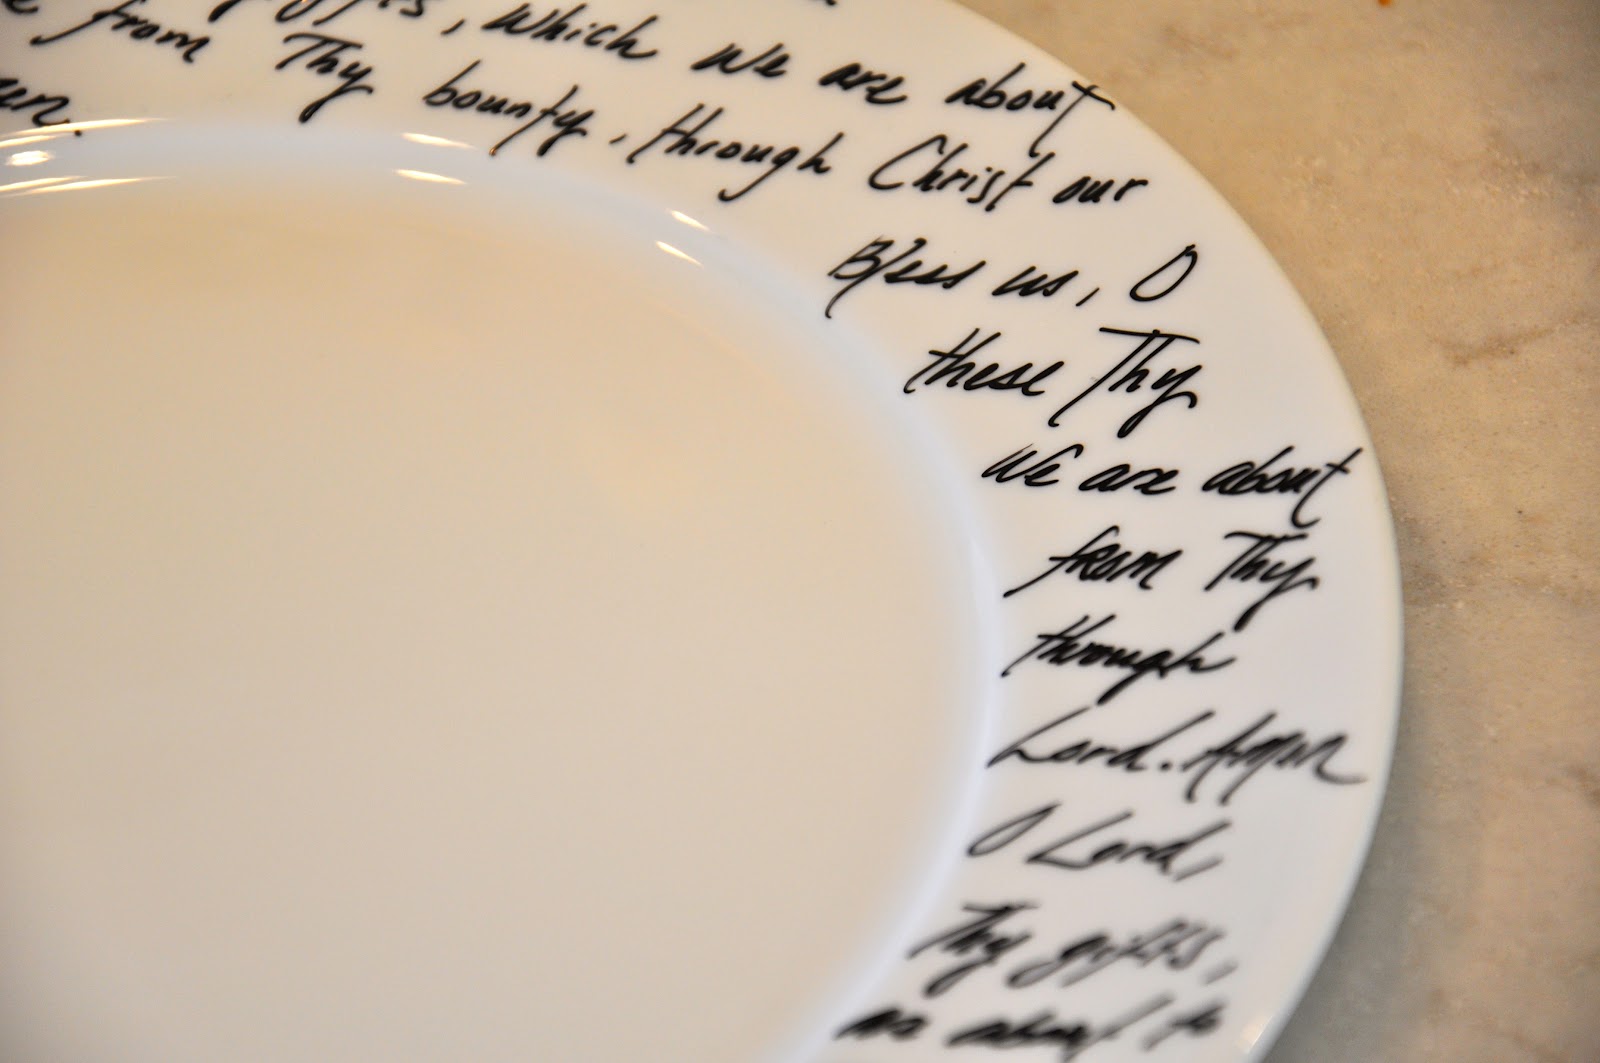 gifts, which we are about
from Thy bounty, through Christ our
Bless us, O
these Thy
We are about
from Thy
through
Lord. Amen
O Lord,
Thy gifts,
about to